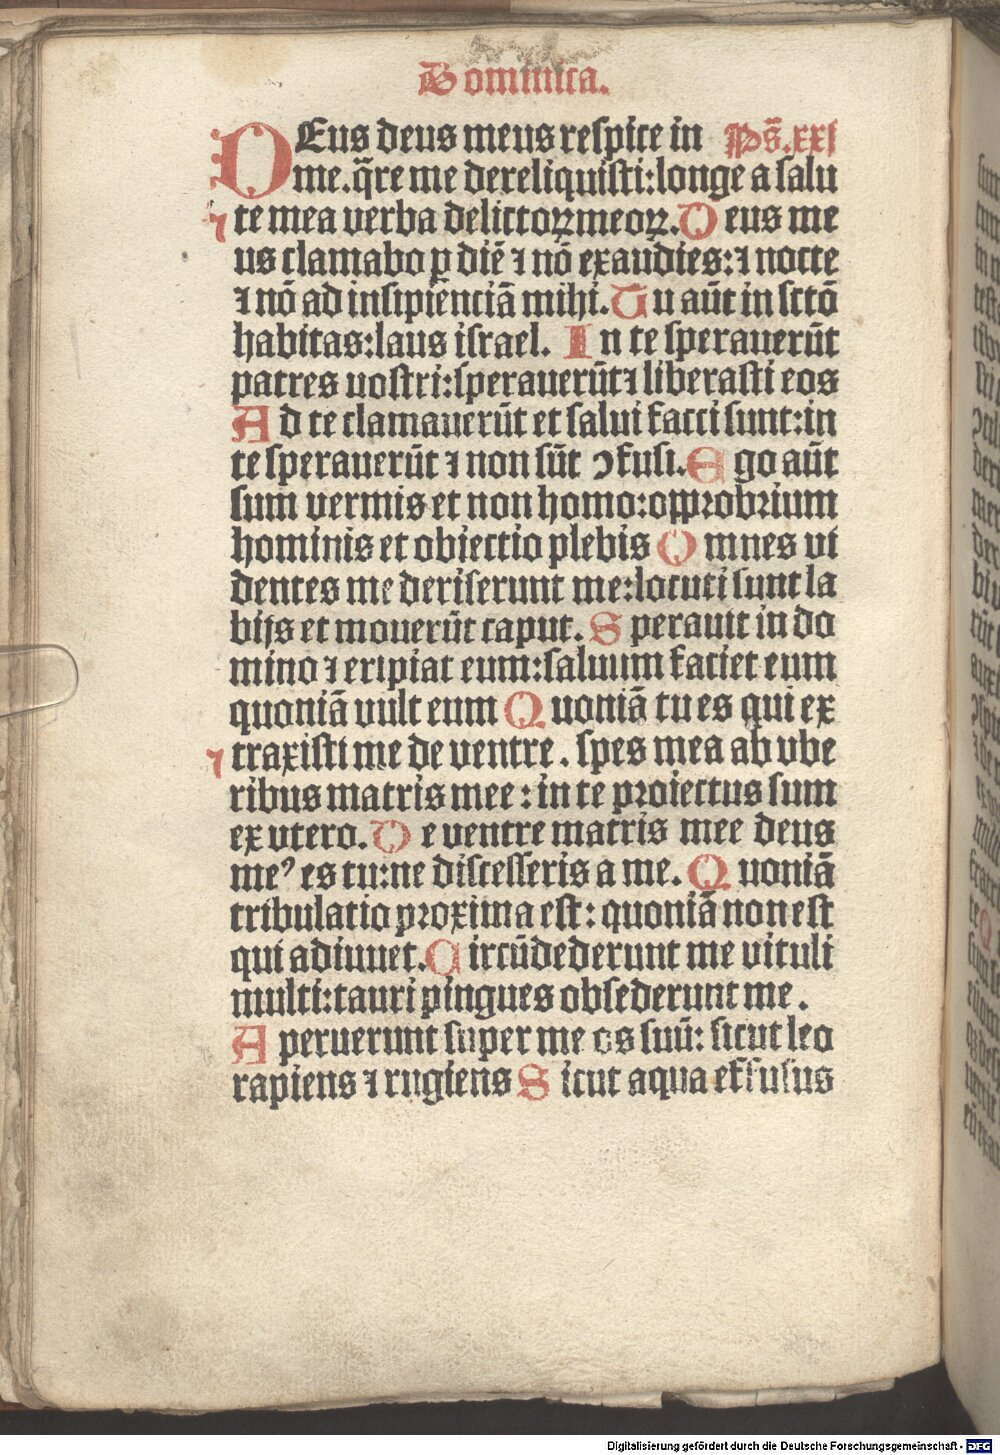 Dominica.
DEus deus meus respice in Ps̄.xxi
me.q̄re me dereliquisti:longe a salu
te mea verba delictoꝝmeoꝝ.Deus me
us clamabo ꝑ diē ⁊ nō exaudies:⁊ nocte
⁊ nō ad insipienciā mihi.Tu aūt in sctō
habitas:laus israel. In te sperauerūt
patres nostri:sperauerūt⁊ liberasti eos
Ad te clamauerūt et salui facti sunt:in
te sperauerūt ⁊ non sūt ꝯfusi.Ego aūt
sum vermis et non homo:opprobrium
hominis et obiectio plebis Omnes vi
dentes me deriserunt me:locuti sunt la
bijs et mouerūt caput. Sperauit in do
mino ⁊ eripiat eum:saluum faciet eum
quoniā vult eum Quoniā tu es qui ex
traxisti me de ventre. spes mea ab vbe
ribus matris mee: in te proiectus sum
ex vtero.De ventre matris mee deus
meꝰ es tu:ne discesseris a me. Quoniā
tribulatio proxima est: quoniā non est
qui adiuuet.Circūdederunt me vituli
multi:tauri pingues obsederunt me.
Aperuerunt super me os suū: sicut leo
rapiens ⁊ rugiens Sicut aqua effusus
Digitalisierung gefördert durch die Deutsche Forschungsgemeinschaft - DFG